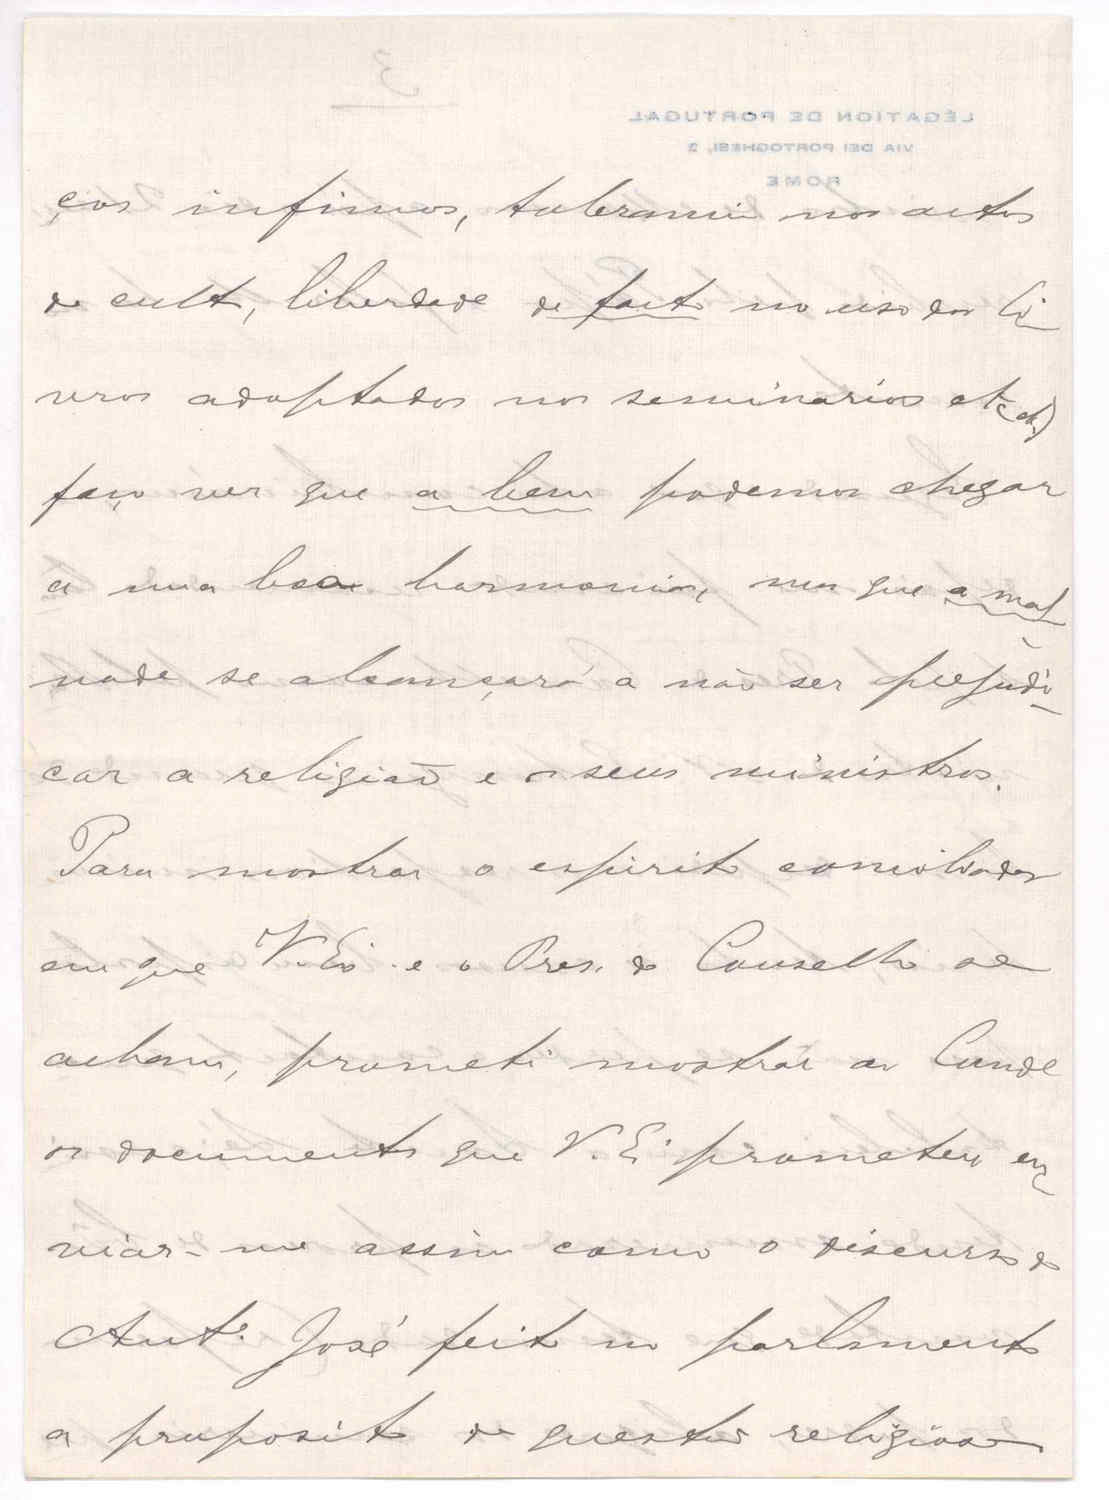 3
LÉGATION DE PORTUGAL
VIA DEI PORTOGHESI, 2
ROME
ços infimos, tolerancia nos actos
de culto, liberdade de facto no uso dos li-
vros adoptados nos seminarios etc etc)
faço ver que a bem podemos chegar
a uma boa harmonia, mas que a mal
nada se alcançará a não ser prejudi-
car a religião e os seus ministros.
Para mostrar o espirito conciliador
em que V. Exª e o Pres. do Conselho se
acham, prometi mostrar ao Conde
os documentos que V. Exª prometeu en-
viar-me assim como o discurso do
Antº José feito no parlamento
a proposito de questões religiosas